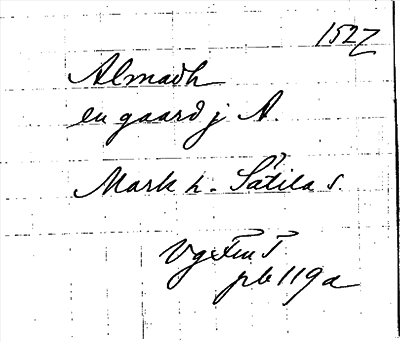 1527
Almadh
en gaard j A.
Mark h. Sätila s.
Vg FmT
pb 119a